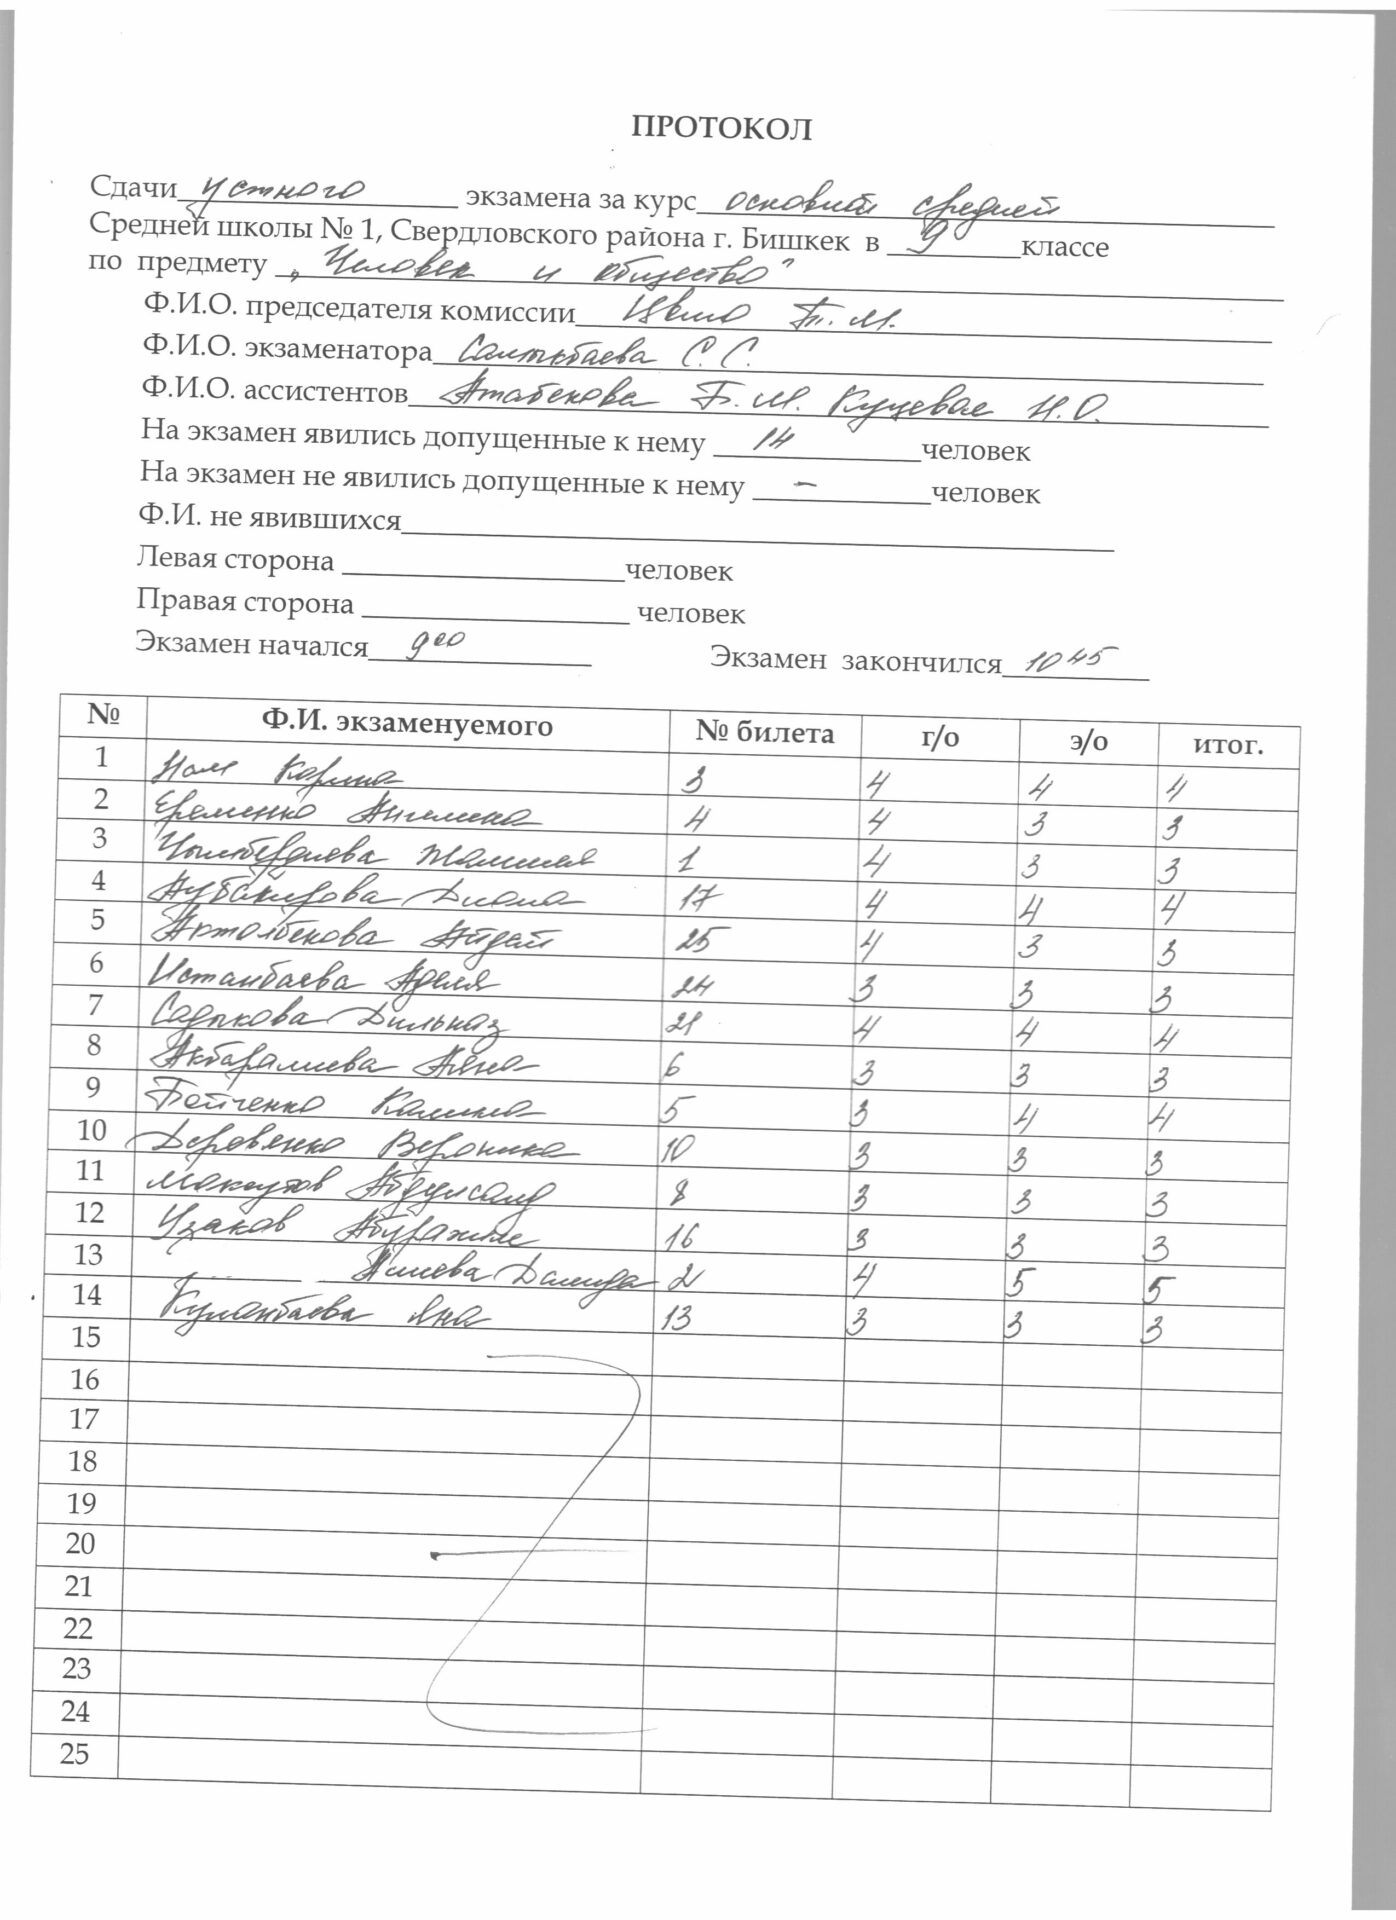 ПРОТОКОЛ
Сдачи устного экзамена за курс основной средней
Средней школы № 1, Свердловского района г. Бишкек в 9 классе
по предмету „Человек и общество"
Ф.И.О. председателя комиссии Т.М.
Ф.И.О. экзаменатора Салтыкбаева С.С.
Ф.И.О. ассистентов Атабекова Б.М. Н.О.
На экзамен явились допущенные к нему 14 человек
На экзамен не явились допущенные к нему - человек
Ф.И. не явившихся
Левая сторона человек
Правая сторона человек
Экзамен начался 9 00 Экзамен закончился 10 45
№ Ф.И. экзаменуемого № билета г/о э/о итог.
1 Карина 3 4 4 4
2 Еременко Ангелина 4 4 3 3
3 1 4 3 3
4 Аубакирова Диана 17 4 4 4
5 Айдай 25 4 3 3
6 Аделя 24 3 3 3
7 Садыкова Дильназ 21 4 4 4
8 Акбаралиева 6 3 3 3
9 Бойченко 5 3 4 4
10 Деровянко Вероника 10 3 3 3
11 Максутов 8 3 3 3
12 Узаков 16 3 3 3
13 Алиева 2 4 5 5
14 Яна 13 3 3 3
15
16
17
18
19
20
21
22
23
24
25